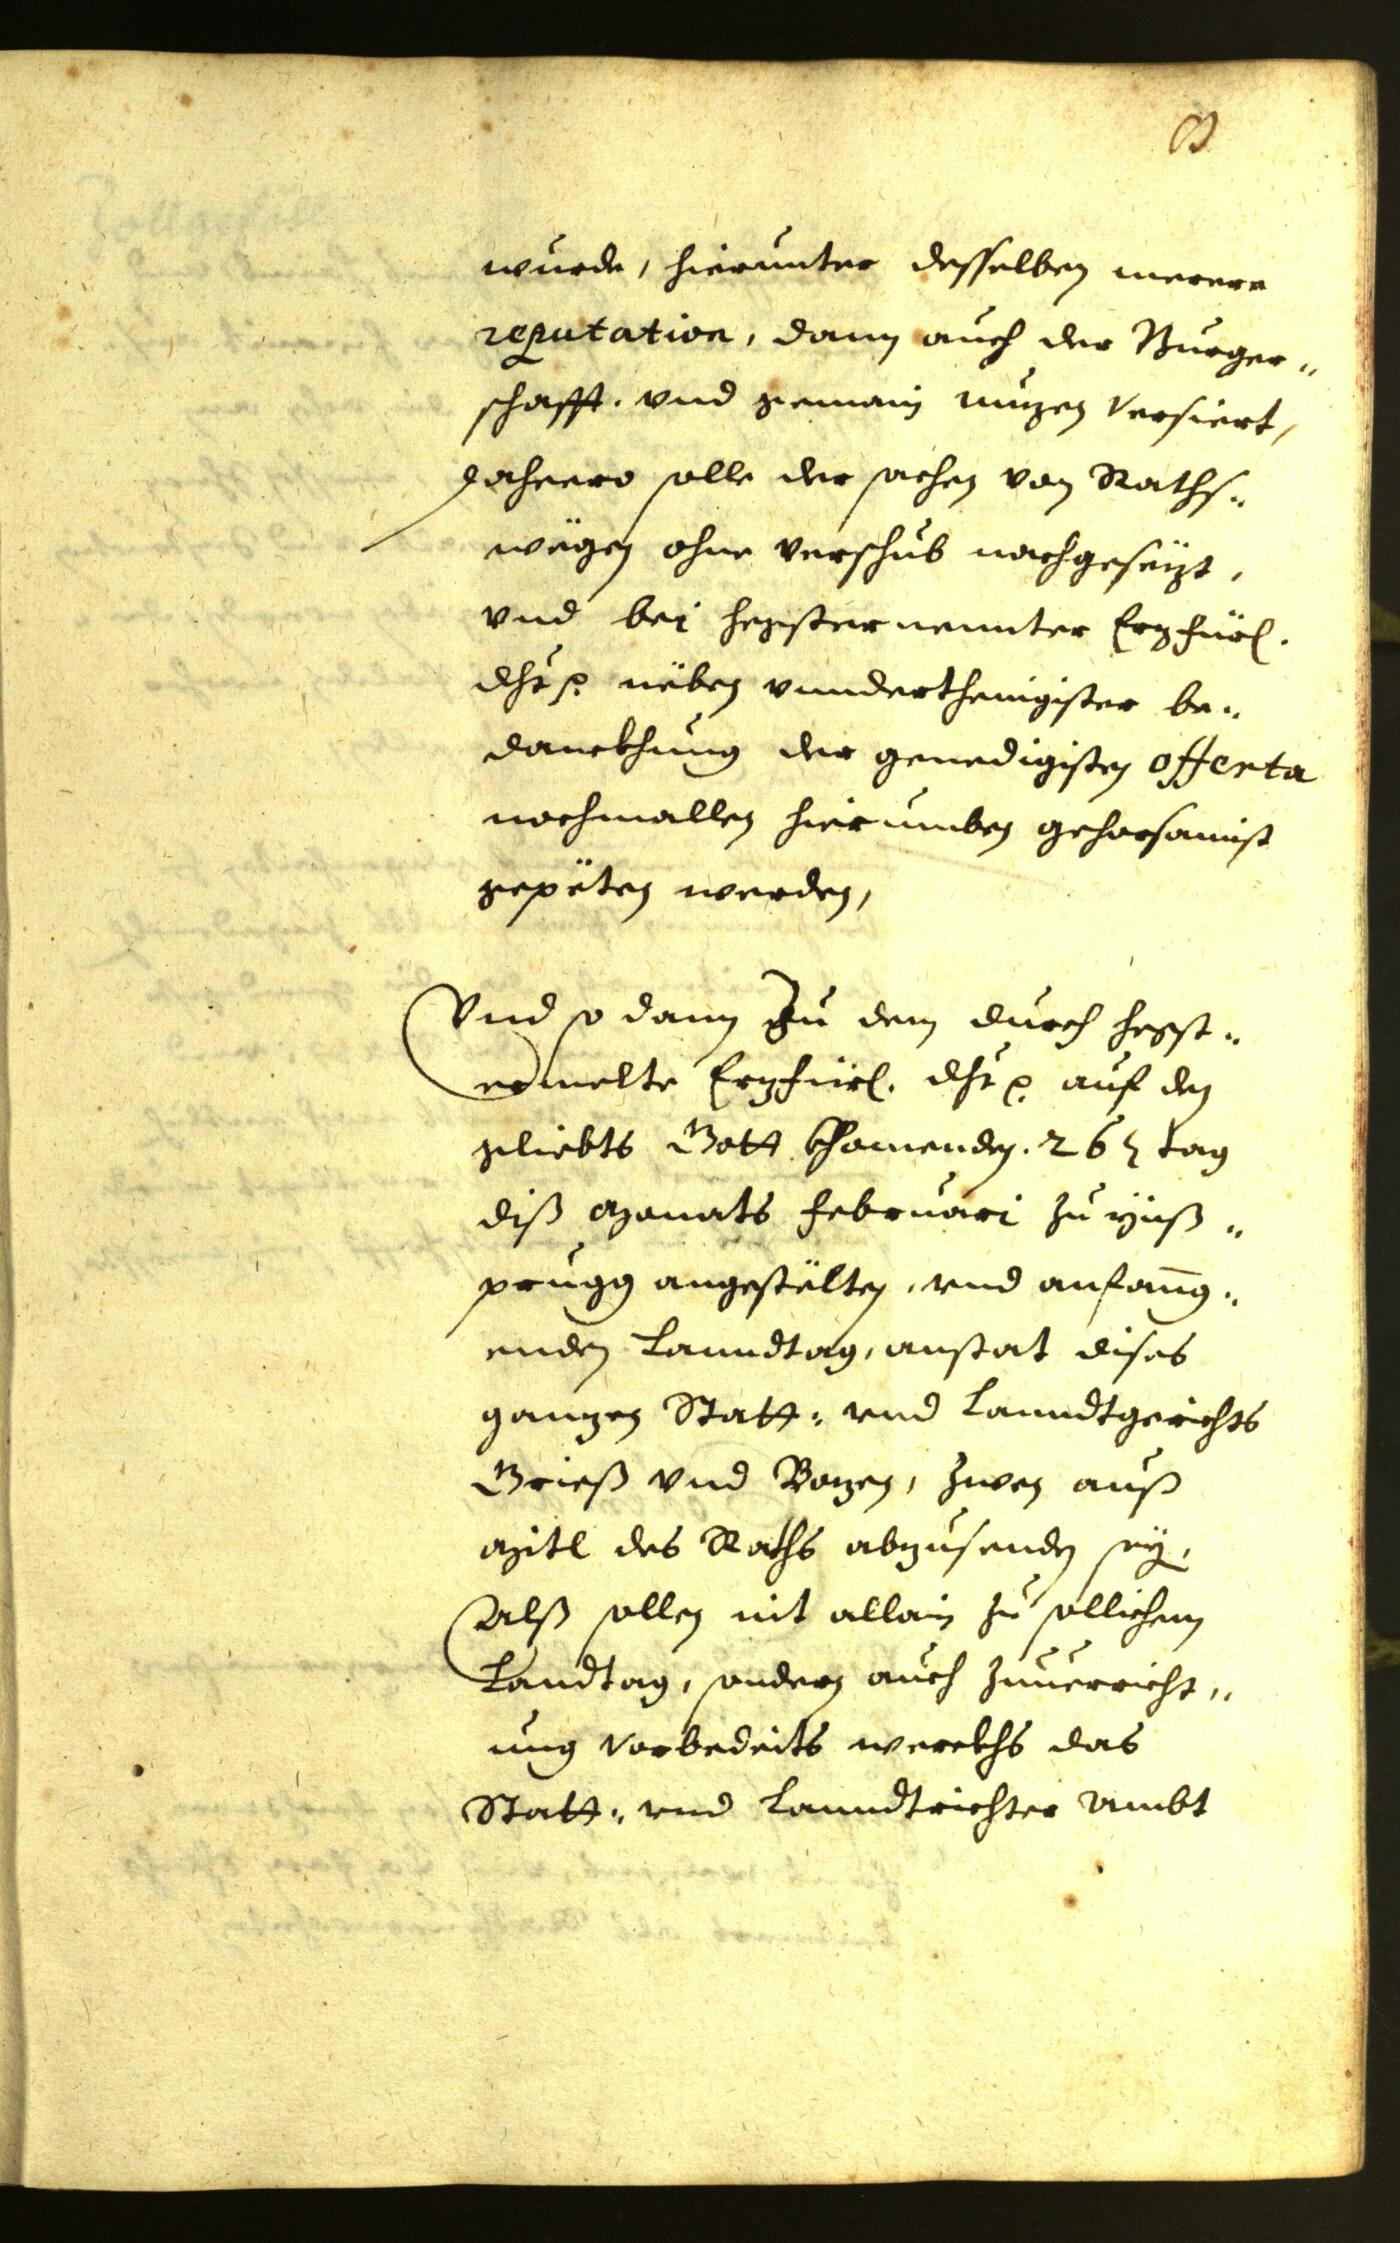 wurde, hierunter desselben merere
reputation, dann auch der Burger„
schafft. vnd gemain nuzen Versiert,
dahero solle der sachen von Raths„
wëgen ohne verschub nachgesëzt,
vnd bei hegsternennter Erzfürl.
dht p. nëben vnnderthenigister be„
danckhung der genedigisten offerta
nochmallen hierumben gehorsamist
gepëten werden,
Vnd so dann Zu dem durch hegst„
ermelte Erzfürl. dht p. auf den
geliebts Gott khomenden. 26 tag
diß Monats februari zu Ynß„
prugg angestëlten, vnd anfang„
enden Lanndtag, anstat dises
ganzen Statt: vnd Lanndtgerichts
Grieß vnd Bozen, zwen auß
Mitl des Raths abzusenden sey,
Alß sollen nit allain zu sollichem
Landtag, sondern auch zuuerricht„
ung Vorbedeits werckhs das
Statt„ vnd Lanndtrichter Ambt